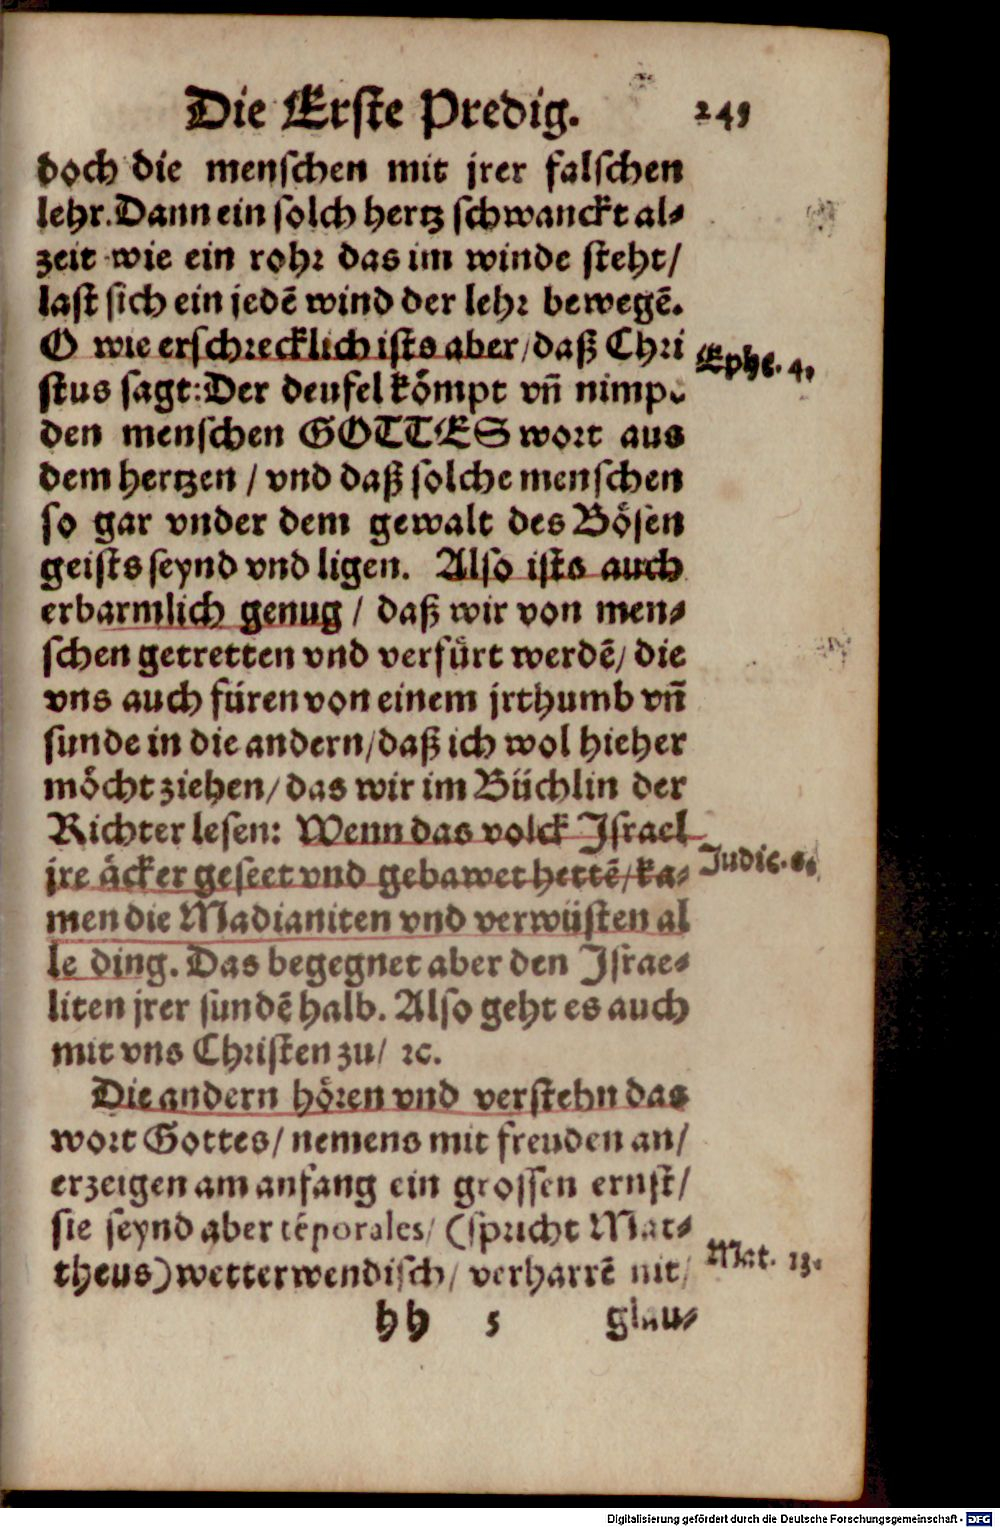 Die Erste Predig. 245
doch die menschen mit jrer falschen
lehr. Dann ein solch hertz schwanckt al-
zeit wie ein rohr das im winde steht/
last sich ein jedē wind der lehr bewegē.
O wie erschrecklich ists aber/ daß Chri Ephe. 4.
stus sagt: Der deufel kömpt vñ nimpt
den menschen GOTTES wort aus
dem hertzen / vnd daß solche menschen
so gar vnder dem gewalt des Bösen
geists seynd vnd ligen. Also ists auch
erbarmlich genug / daß wir von men-
schen getretten vnd verfürt werdē/ die
vns auch füren von einem jrthumb vñ
sunde in die andern/ daß ich wol hieher
möcht ziehen/ das wir im Büchlin der
Richter lesen: Wenn das volck Israel
jre äcker geseet vnd gebawet hettē/ ka- Judic. 6.
men die Madianiten vnd verwüsten al
le ding. Das begegnet aber den Israe-
liten jrer sundē halb. Also geht es auch
mit vns Christen zu/ ꝛc.
Die andern hören vnd verstehn das
wort Gottes/ nemens mit freuden an/
erzeigen am anfang ein grossen ernst/
sie seynd aber tēporales/ (spricht Mat-
theus) wetterwendisch/ verharrē nit/ Mat. 13.
hh 5 glau-
Digitalisierung gefördert durch die Deutsche Forschungsgemeinschaft - DFG